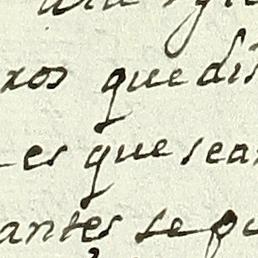 xos que dis
es que sean
antes se pu